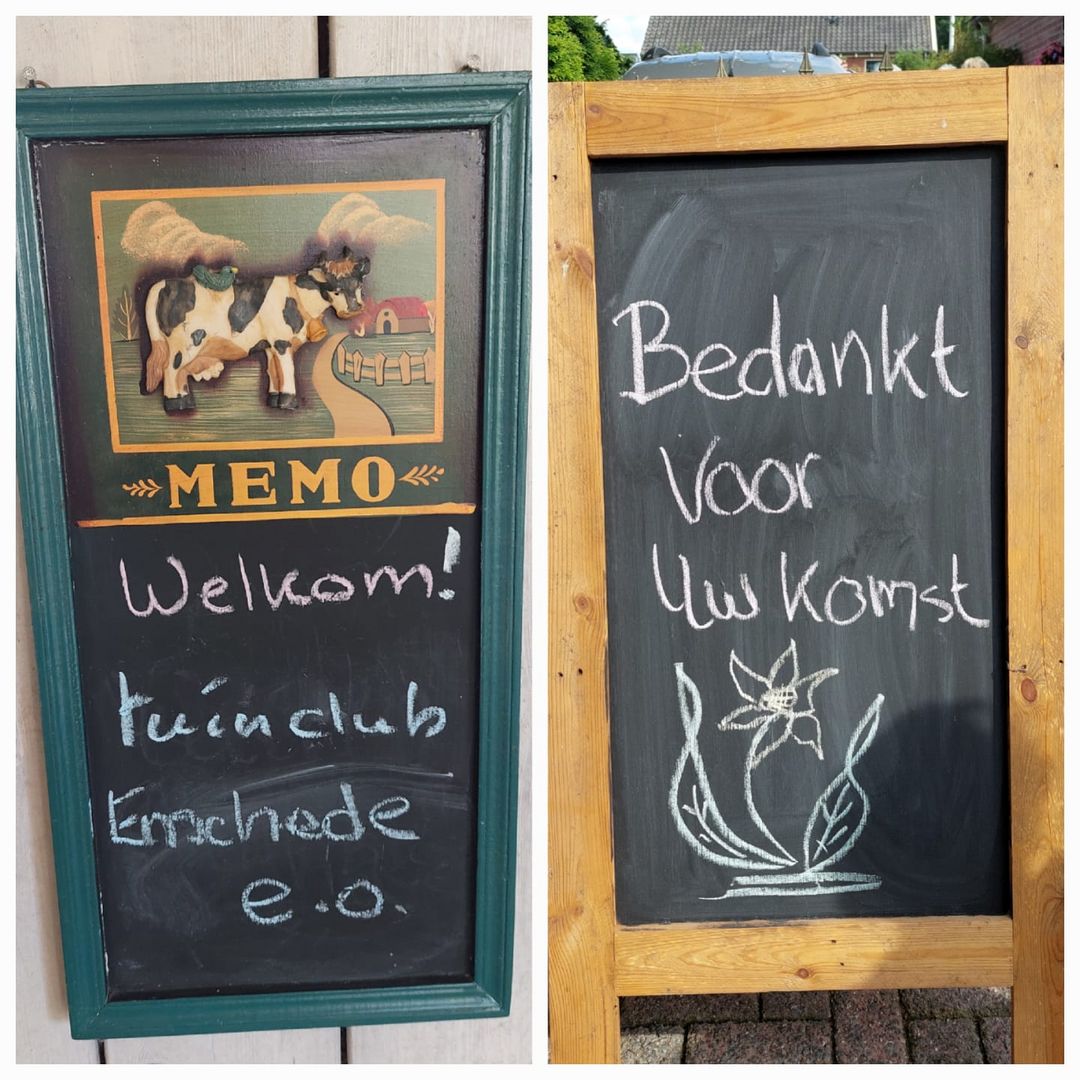 MEMO
Welkom!
tuinclub
Enschede
e.o.
Bedankt
Voor
Uw Komst